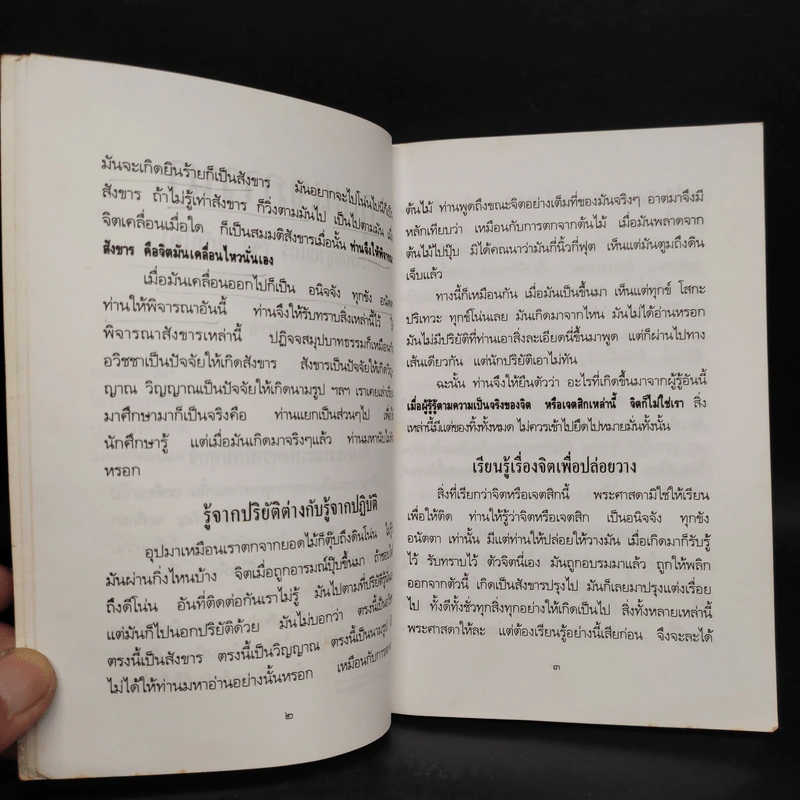 มันจะเกิดยินร้ายก็เป็นสังขาร มันอยากจะไปโน่นไปนี่ก็เป็น
สังขาร ถ้าไม่รู้เท่าสังขาร ก็วิ่งตามมันไป เป็นไปตามมัน เมื่อ
จิตเคลื่อนเมื่อใด ก็เป็นสมมติสังขารเมื่อนั้น ท่านจึงให้พิจารณา
สังขาร คือจิตมันเคลื่อนไหวนั่นเอง
เมื่อมันเคลื่อนออกไปก็เป็น อนิจจัง ทุกขัง อนัตตา
ท่านให้พิจารณาอันนี้ ท่านจึงให้รับทราบสิ่งเหล่านี้ไว้
พิจารณาสังขารเหล่านี้ ปฏิจจสมุปบาทธรรมก็เหมือนกัน
อวิชชาเป็นปัจจัยให้เกิดสังขาร สังขารเป็นปัจจัยให้เกิดวิญ
ญาณ วิญญาณเป็นปัจจัยให้เกิดนามรูป ฯลฯ เราเคยเล่าเรียน
มาศึกษามาก็เป็นจริงคือ ท่านแยกเป็นส่วนๆไป เพื่อให้
นักศึกษารู้ แต่เมื่อมันเกิดมาจริงๆแล้ว ท่านมหานับไม่ทัน
หรอก
รู้จากปริยัติต่างกับรู้จากปฏิบัติ
อุปมาเหมือนเราตกจากยอดไม้ก็ตุ๊บถึงดินโน่น ไม่รู้ว่า
มันผ่านกิ่งไหนบ้าง จิตเมื่อถูกอารมณ์ปุ๊บขึ้นมา ถ้าชอบใจก็
ถึงดีโน่น อันที่ติดต่อกันเราไม่รู้ มันไปตามที่ปริยัติรู้นั่นเอง
แต่มันก็ไปนอกปริยัติด้วย มันไม่บอกว่า ตรงนี้เป็นอวิชชา
ตรงนี้เป็นสังขาร ตรงนี้เป็นวิญญาณ ตรงนี้เป็นนามรูป มัน
ไม่ได้ให้ท่านมหาอ่านอย่างนั้นหรอก เหมือนกับการตกจาก
๒
ต้นไม้ ท่านพูดถึงขณะจิตอย่างเต็มที่ของมันจริงๆ อาตมาจึงมี
หลักเทียบว่า เหมือนกับการตกจากต้นไม้ เมื่อมันพลาดจาก
ต้นไม้ไปปุ๊บ มิได้คณนาว่ามันกี่นิ้วกี่ฟุต เห็นแต่มันตูมถึงดิน
เจ็บแล้ว
ทางนี้ก็เหมือนกัน เมื่อมันเป็นขึ้นมา เห็นแต่ทุกข์ โสกะ
ปริเทวะ ทุกข์โน่นเลย มันเกิดมาจากไหน มันไม่ได้อ่านหรอก
มันไม่มีปริยัติที่ท่านเอาสิ่งละเอียดนี่ขึ้นมาพูด แต่ก็ผ่านไปทาง
เส้นเดียวกัน แต่นักปริยัติเอาไม่ทัน
ฉะนั้น ท่านจึงให้ยืนตัวว่า อะไรที่เกิดขึ้นมาจากผู้รู้อันนี้
เมื่อผู้รู้รู้ตามความเป็นจริงของจิต หรือเจตสิกเหล่านี้ จิตก็ไม่ใช่เรา สิ่ง
เหล่านี้มีแต่ของทิ้งทั้งหมด ไม่ควรเข้าไปยึดไปหมายมั่นทั้งนั้น
เรียนรู้เรื่องจิตเพื่อปล่อยวาง
สิ่งที่เรียกว่าจิตหรือเจตสิกนี้ พระศาสดามิใช่ให้เรียน
เพื่อให้ติด ท่านให้รู้ว่าจิตหรือเจตสิก เป็นอนิจจัง ทุกขัง
อนัตตา เท่านั้น มีแต่ท่านให้ปล่อยให้วางมัน เมื่อเกิดมาก็รับรู้
ไว้ รับทราบไว้ ตัวจิตนี่เอง มันถูกอบรมมาแล้ว ถูกให้พลิก
ออกจากตัวนี้ เกิดเป็นสังขารปรุงไป มันก็เลยมาปรุงแต่งเรื่อย
ไป ทั้งดีทั้งชั่วทุกสิ่งทุกอย่างให้เกิดเป็นไป สิ่งทั้งหลายเหล่านี้
พระศาสดาให้ละ แต่ต้องเรียนรู้อย่างนี้เสียก่อน จึงจะละได้
๓